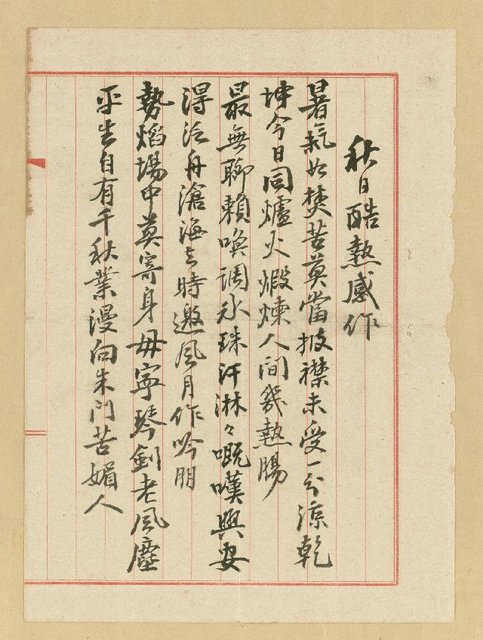 秋日酷熱感作
暑氣如焚苦莫當披襟未受一分涼乾
坤今日同爐火煅煉人間幾熱腸
最無聊賴喚調冰珠汗淋々嘅嘆興安
得泛舟滄海去時邀風月作吟朋
勢焰場中莫寄身毋寧琴劍老風塵
平生自有千秋業漫向朱門苦媚人